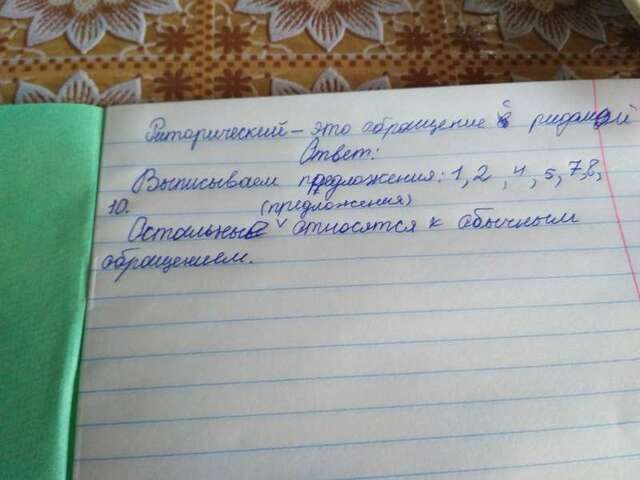 Риторический – это обращение с рифмой
Ответ:
Выписываем предложения: 1, 2, 4, 5, 7, 8,
10. (предложения)
Остальные относятся к обычным
обращением.